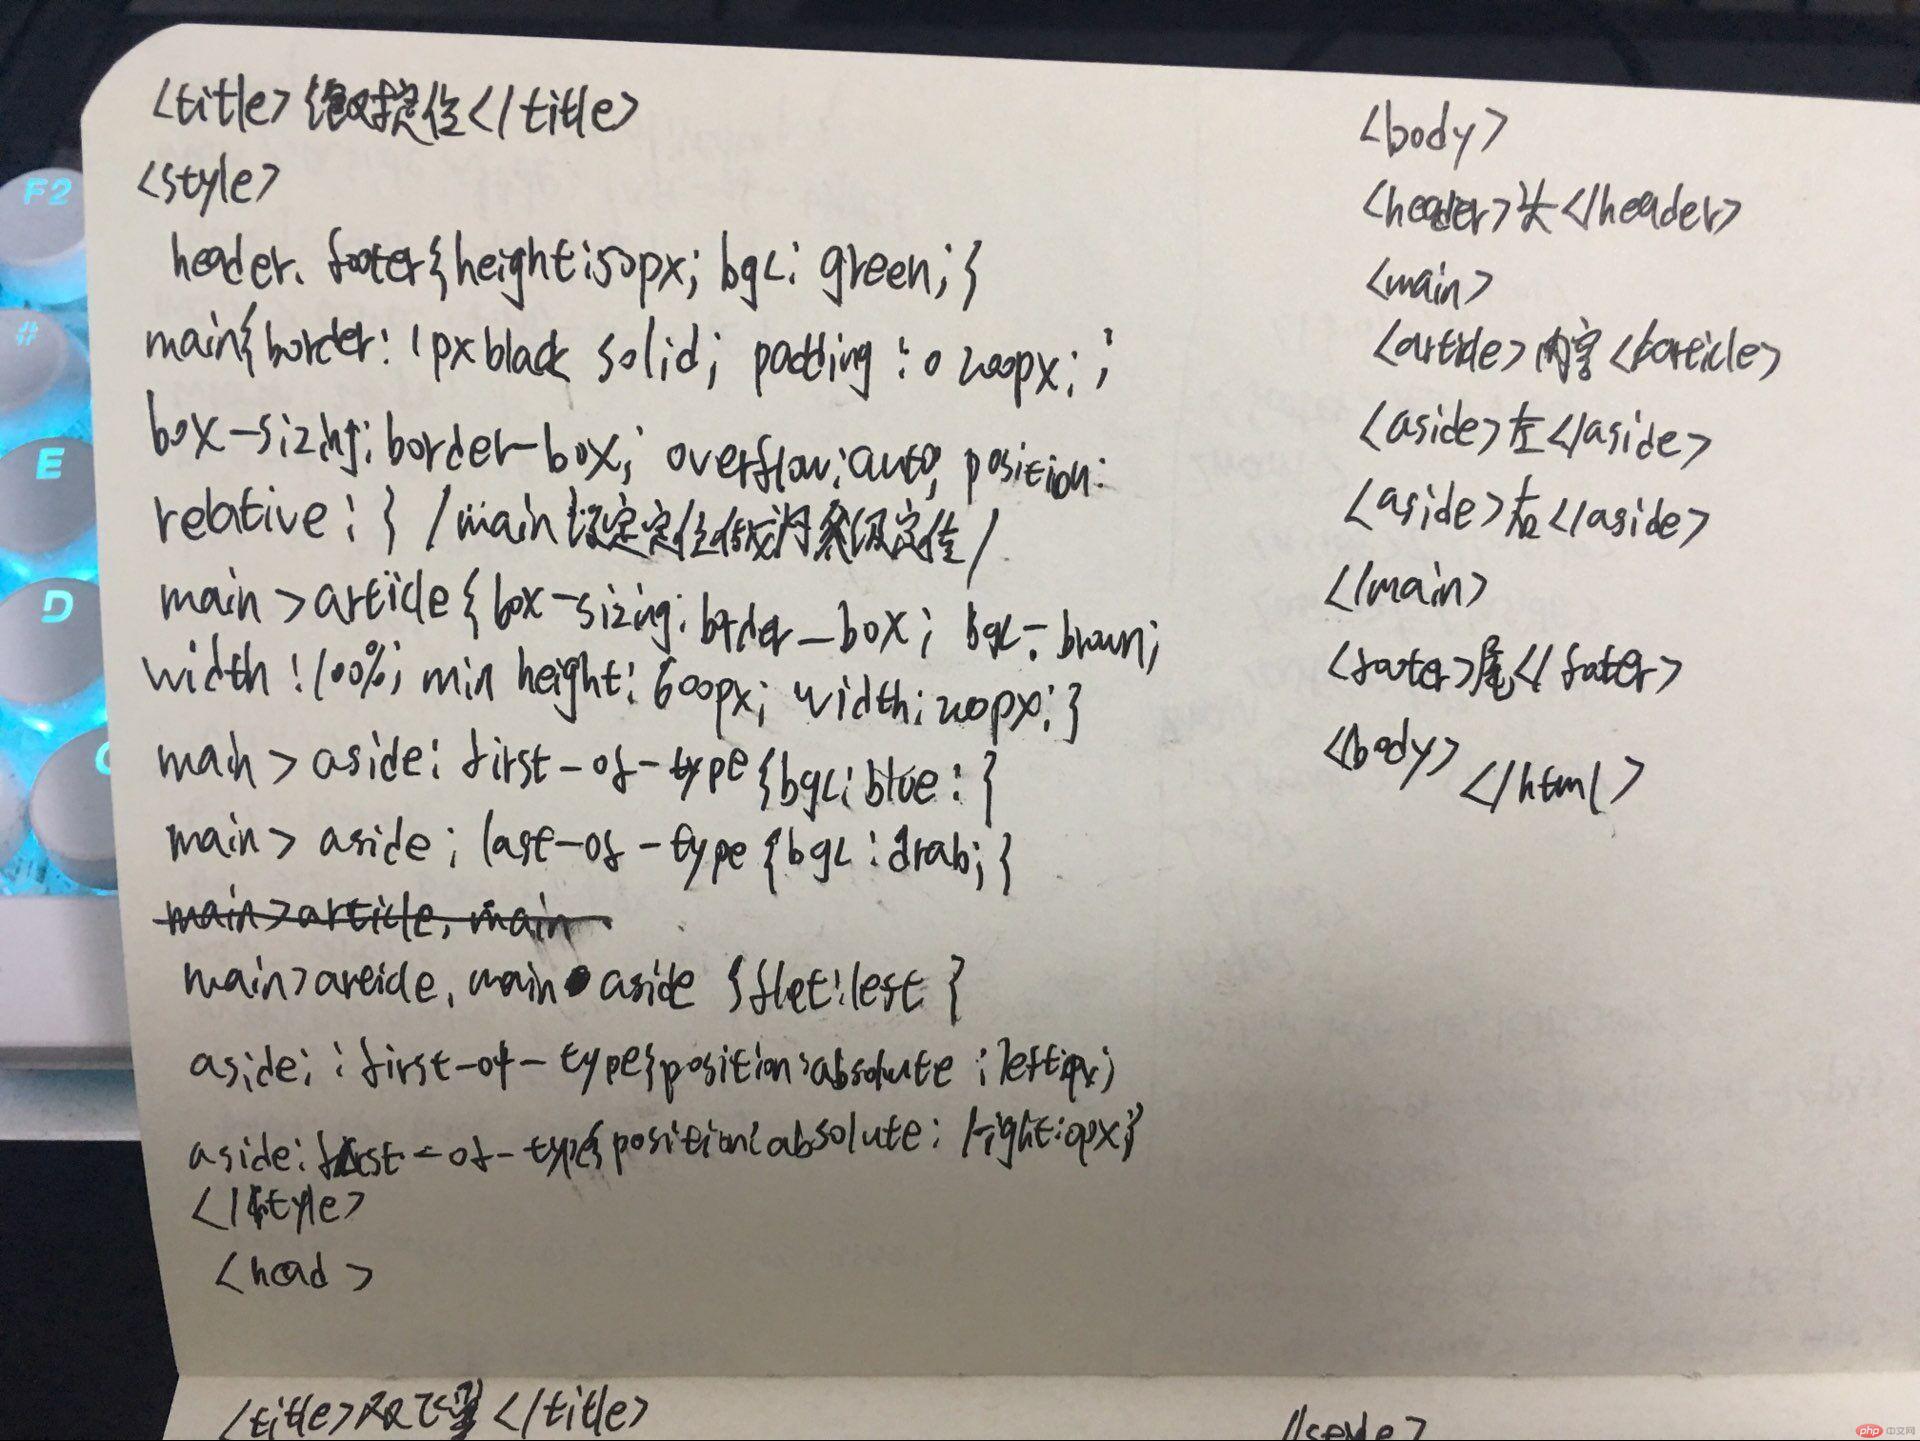 <title>绝对定位</title>
<style>
header. footer{height:50px; bgc: green;}
main{border: 1px black solid; padding : 0 200px; ;
box-sizing: border-box; overflow:auto; position:
relative : } /main 设定定位做为父级定位/
main >article{ box-sizing: border_box ; bgc: brown;
width : 100%; min height: 600px; width: 200px; }
main > aside: first-of-type{bgc: blue : }
main > aside ; last-of-type {bgc : drab; }
main>article, main
main>article, main aside {flot:left }
aside: : first-of-type{position:absolute : left:0px}
aside: first-of-type{position:absolute: right:0px}
</style>
<head >
<title>双飞翼</title>
<body>
<header>头</header>
<main>
<article>内容</article>
<aside>左</aside>
<aside>右</aside>
</main>
<footer>尾</footer>
<body> </html>
</style>
F2
#
E
D
php 中文网